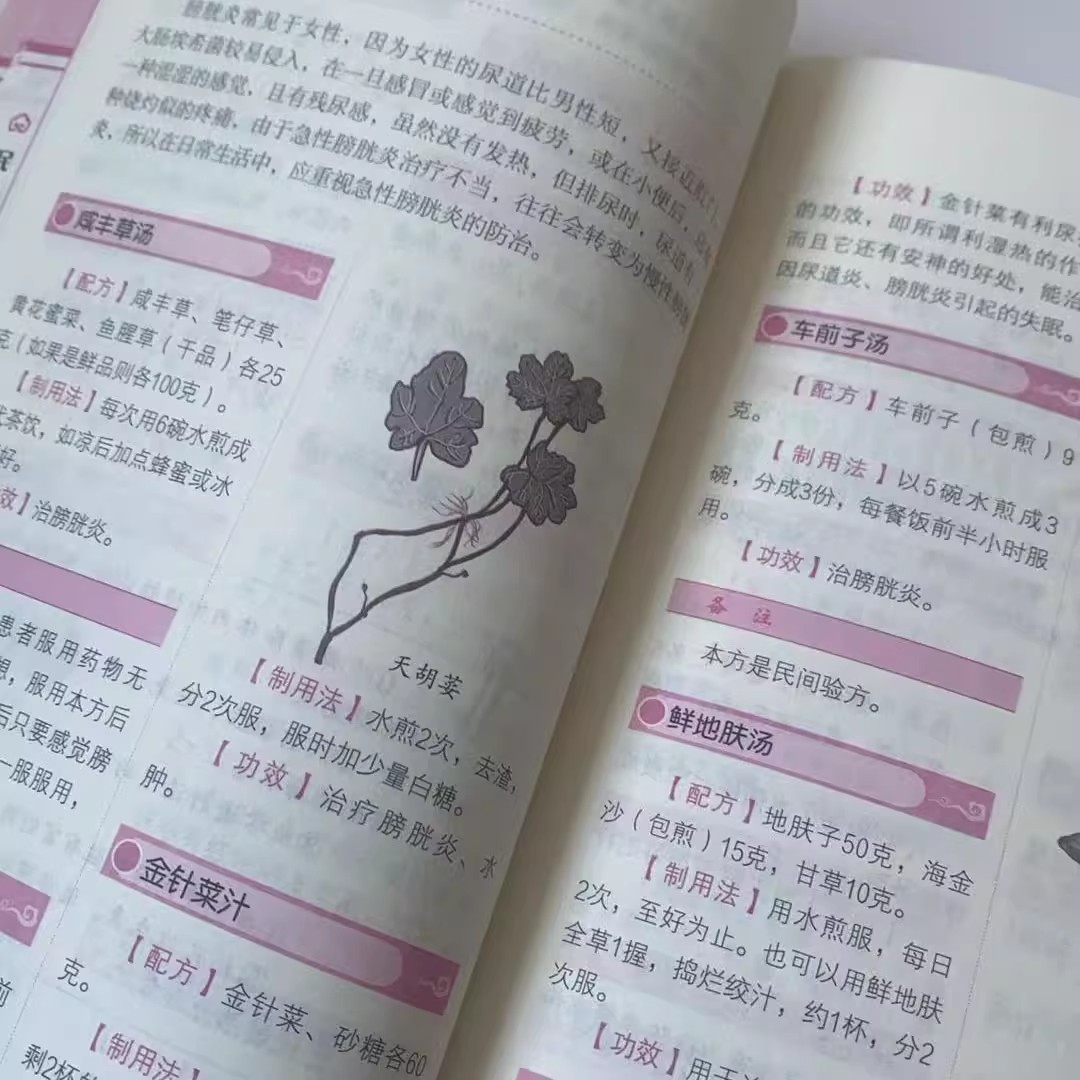 膀胱炎常见于女性，因为女性的尿道比男性短，又接近肛门，
大肠埃希菌较易侵入，在一旦感冒或感觉到疲劳，或在小便后，总有
一种湿湿的感觉，且有残尿感，虽然没有发热，但排尿时，尿道有
种烧灼似的疼痛，由于急性膀胱炎治疗不当，往往会转变为慢性膀胱
炎，所以在日常生活中，应重视急性膀胱炎的防治。
眠
咸丰草汤
【配方】咸丰草、笔仔草、
黄花蜜菜、鱼腥草（干品）各25
克（如果是鲜品则各100克）。
【制用法】每次用6碗水煎成
代茶饮，如凉后加点蜂蜜或冰
好。
效】治膀胱炎。
患者服用药物无
想，服用本方后
后只要感觉膀
一服服用，
前
天胡荽
【制用法】水煎2次，去渣，
分2次服，服时加少量白糖。
【功效】治疗膀胱炎、水
肿。
金针菜汁
【配方】金针菜、砂糖各60
克。
【制用法】
剩2杯
【功效】金针菜有利尿
的功效，即所谓利湿热的作
而且它还有安神的好处，能治
因尿道炎、膀胱炎引起的失眠。
车前子汤
【配方】车前子（包煎）9
克。
【制用法】以5碗水煎成3
碗，分成3份，每餐饭前半小时服
用。
【功效】治膀胱炎。
备 注
本方是民间验方。
鲜地肤汤
【配方】地肤子50克，海金
沙（包煎）15克，甘草10克。
【制用法】用水煎服，每日
2次，至好为止。也可以用鲜地肤
全草1握，捣烂绞汁，约1杯，分2
次服。
【功效】用于